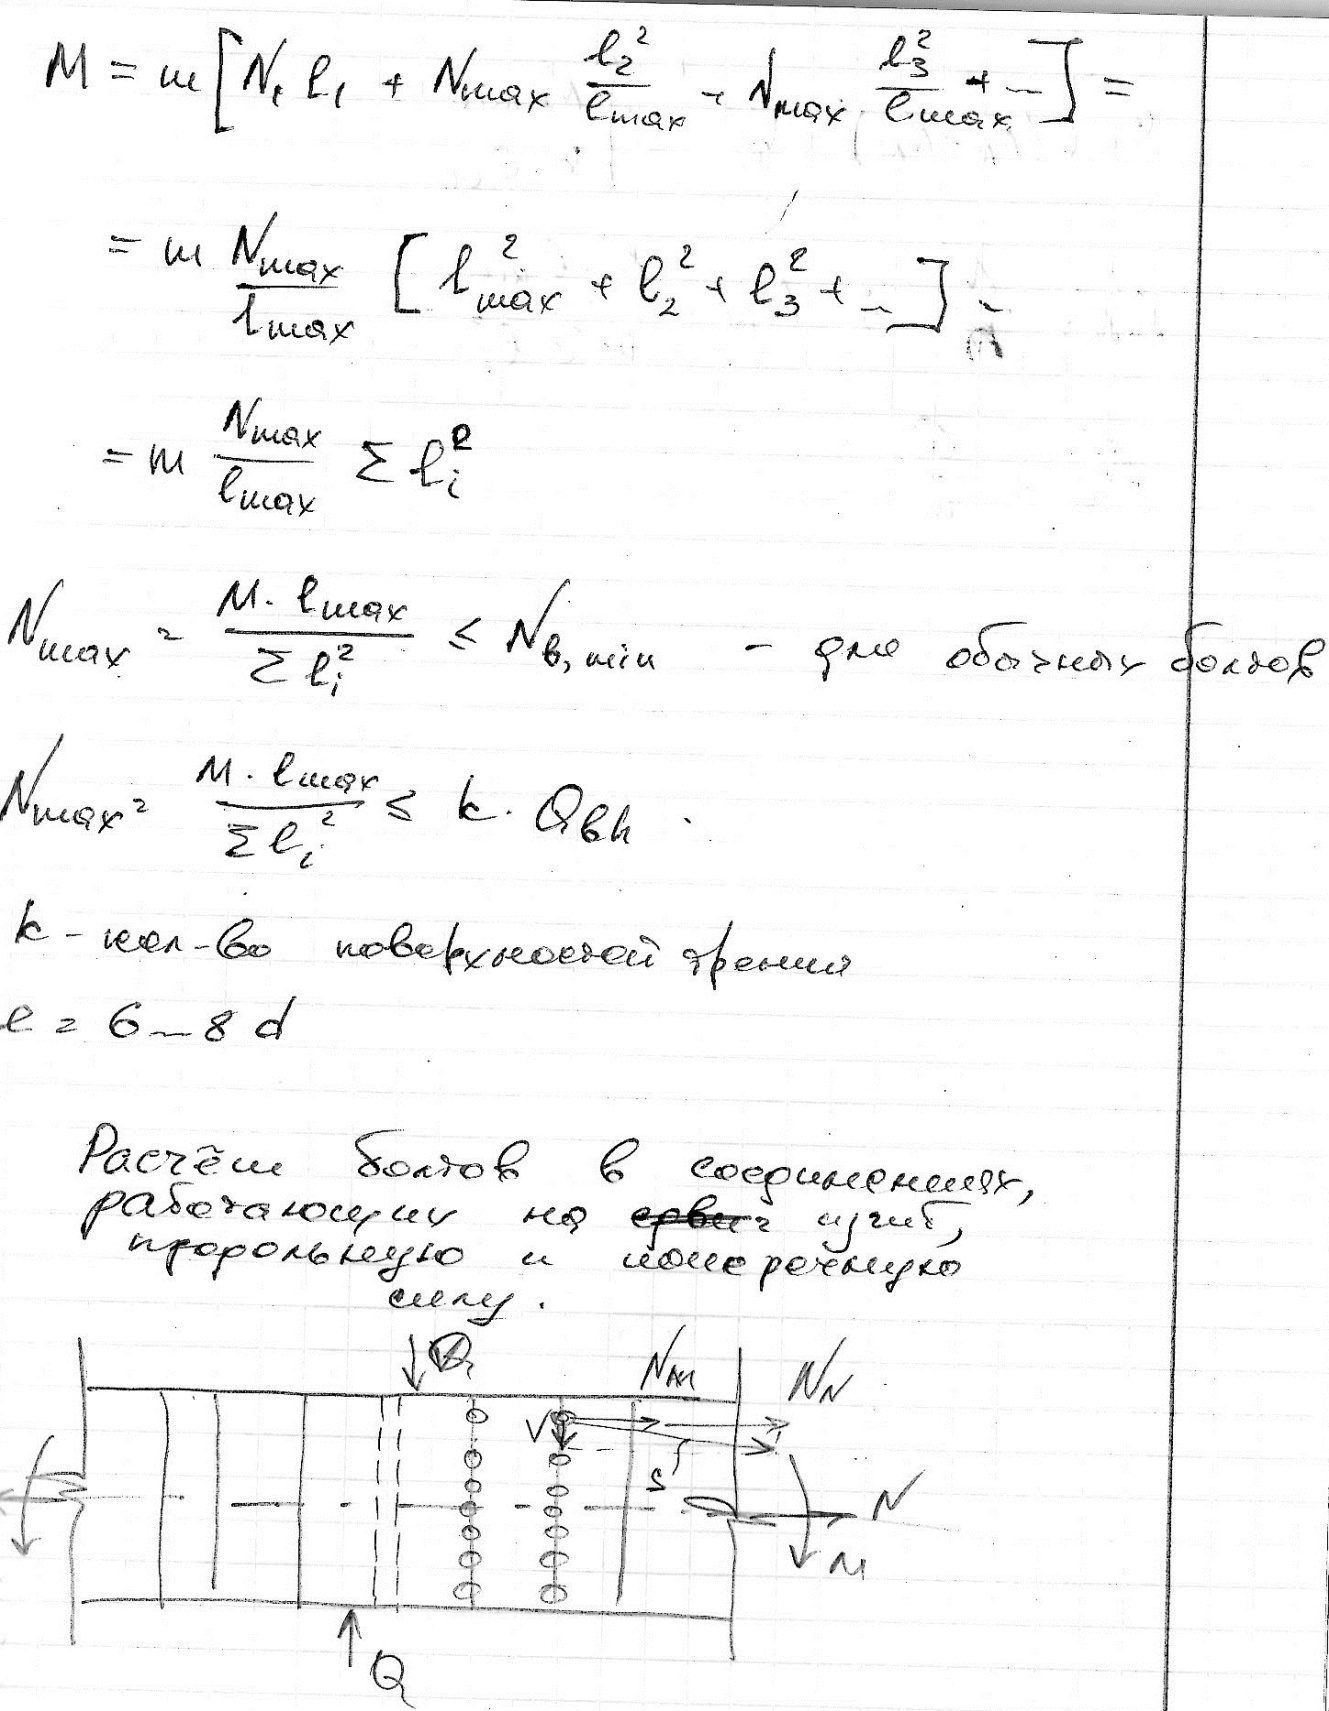 M = m [ N₁ l₁ + Nmax l₂²/lmax + Nmax l₃²/lmax + ... ] =
= m Nmax/lmax [ l²max + l₂² + l₃² + ... ] =
= m Nmax/lmax Σ lᵢ²
Nmax = M · lmax / Σ lᵢ² ≤ Nb,min - для обычных болтов
Nmax = M · lmax / Σ lᵢ² ≤ k · Qbh .
k - кол-во поверхностей трения
e = 6...8 d
Расчёт болтов в соединениях,
работающих на изгиб,
продольную и поперечную
силу.
Q
NM
NN
V
S
N
M
Q